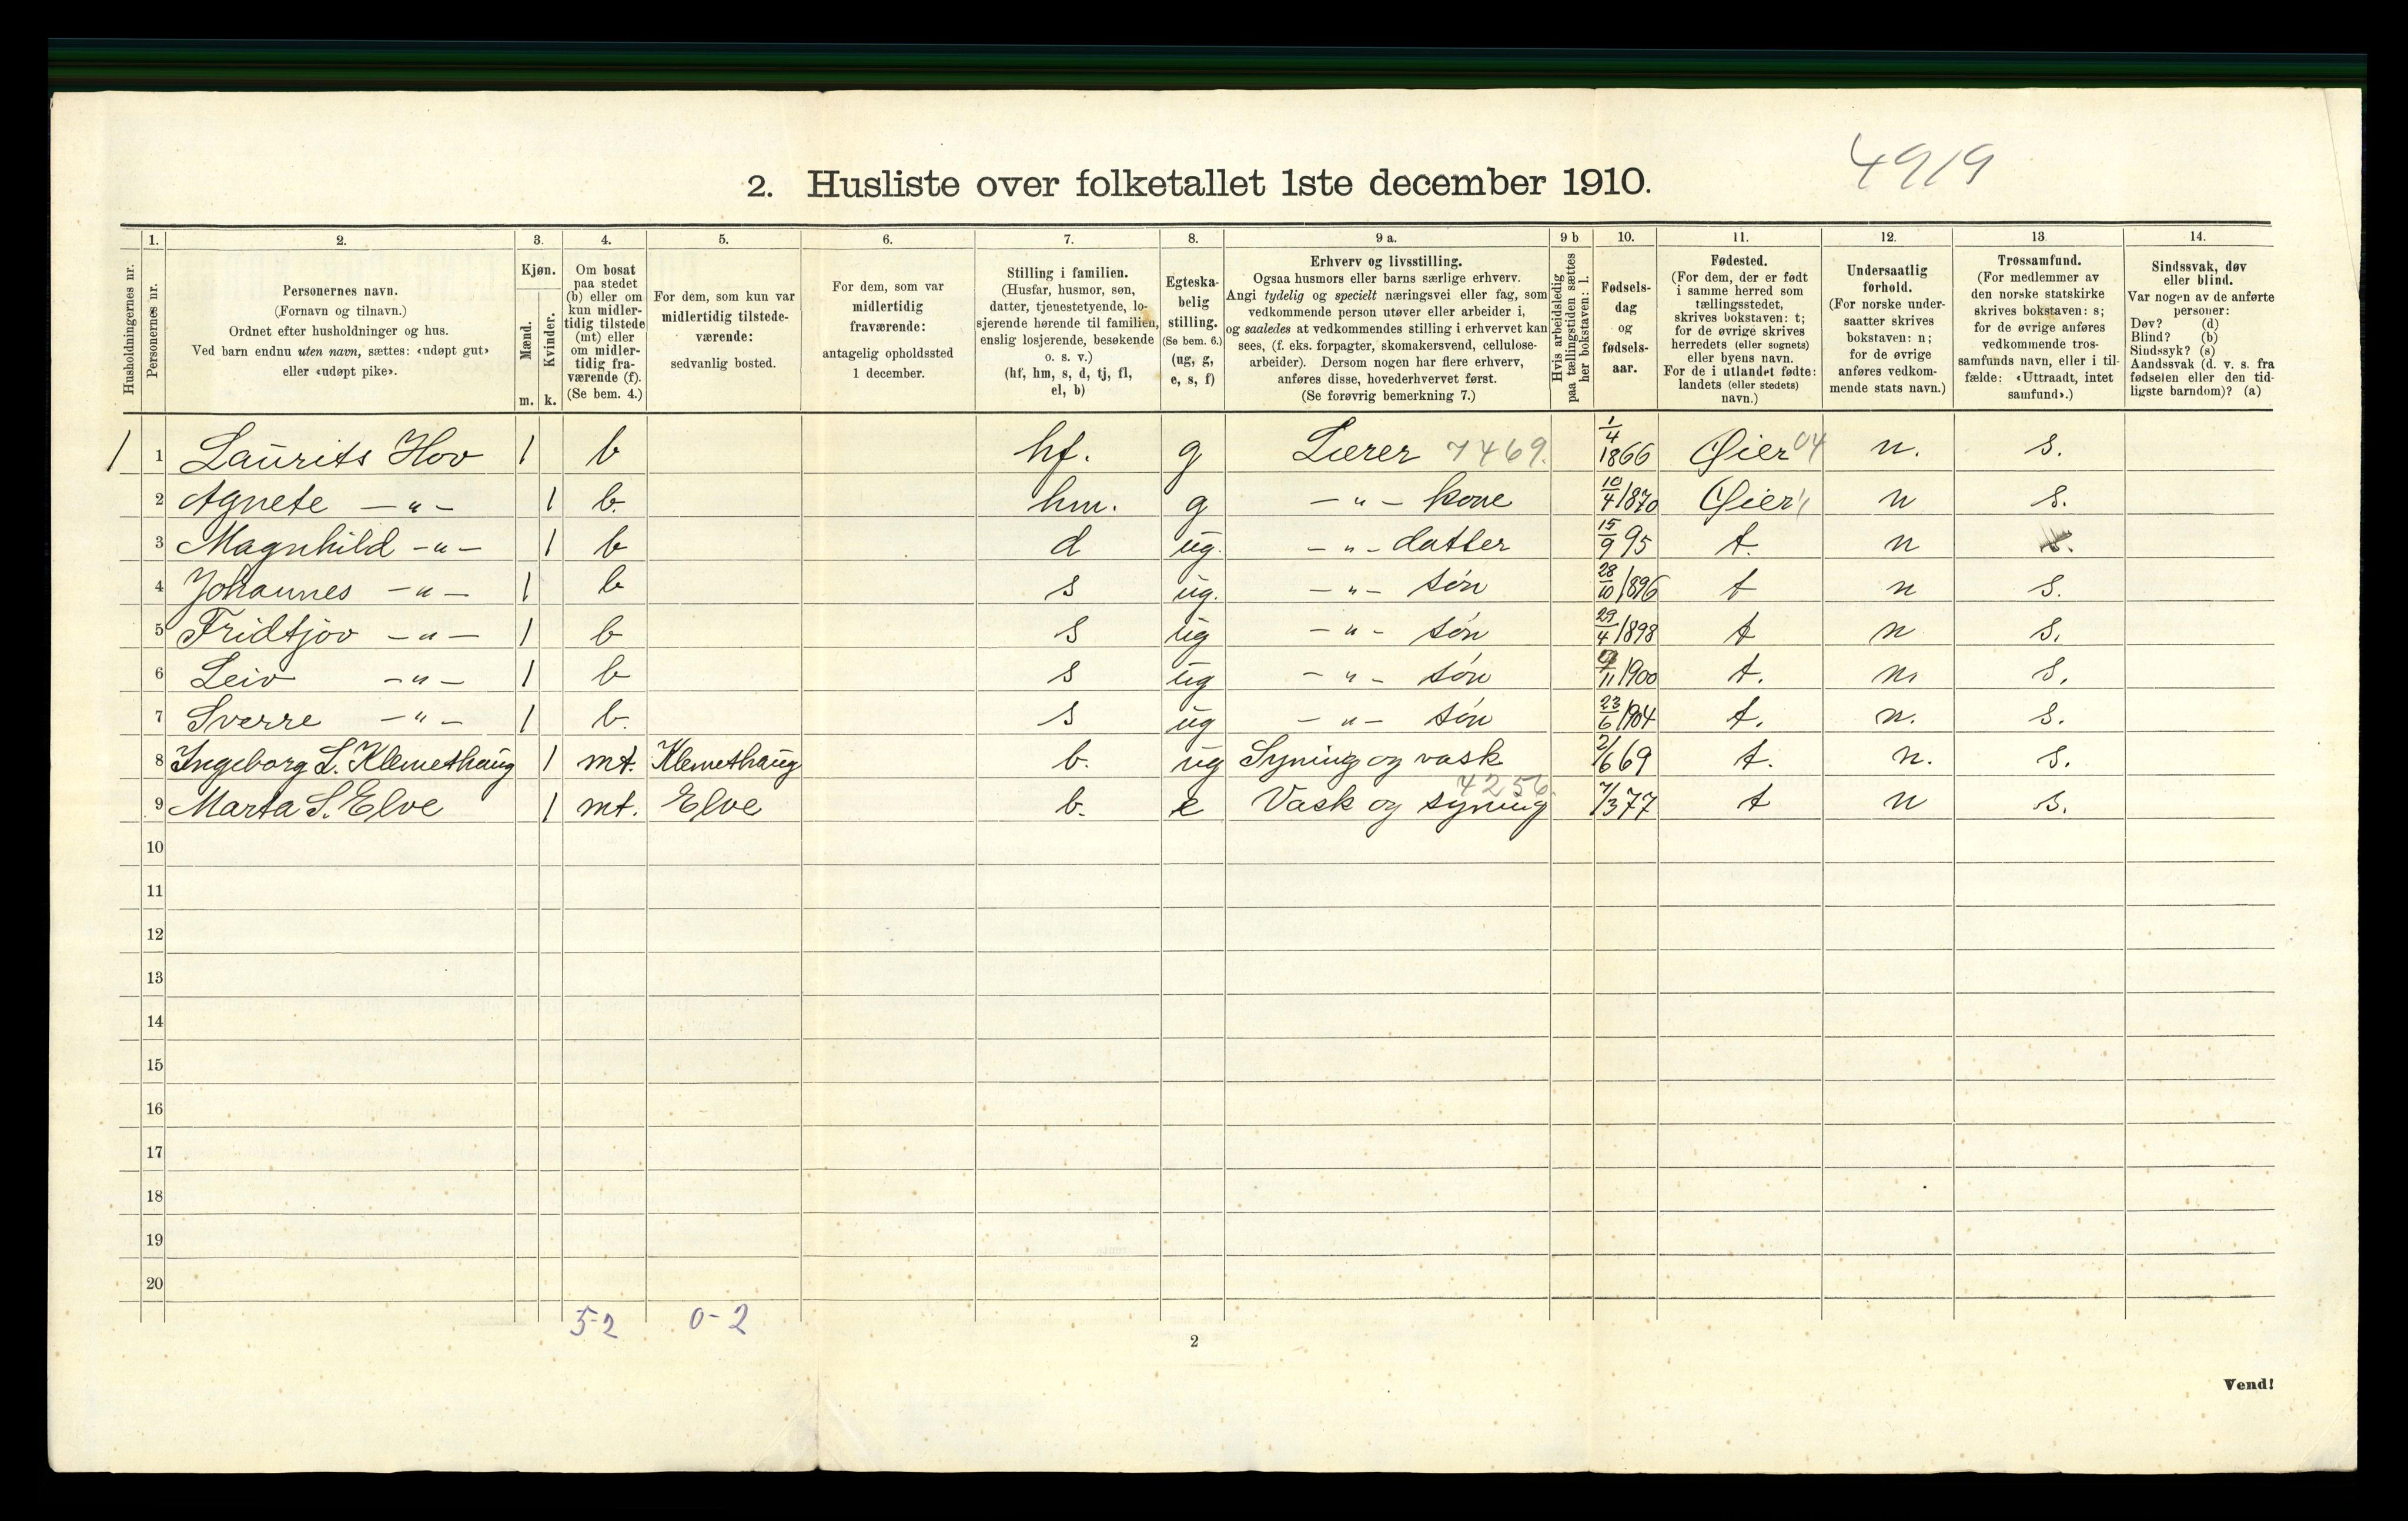 4919
2. Husliste over folketallet 1ste december 1910.
Husholdningernes nr.
1.
Personernes nr.
2.
Personernes navn.
(Fornavn og tilnavn.)
Ordnet efter husholdninger og hus.
Ved barn endnu uten navn, sættes: «udøpt gut»
eller «udøpt pike».
3.
Kjøn.
Mænd.
Kvinder.
m. k.
4.
Om bosat
paa stedet
(b) eller om
kun midler-
tidig tilstede
(mt) eller
om midler-
tidig fra-
værende (f).
(Se bem. 4.)
5.
For dem, som kun var
midlertidig tilstede-
værende:
sedvanlig bosted.
6.
For dem, som var
midlertidig
fraværende:
antagelig opholdssted
1 december.
7.
Stilling i familien.
(Husfar, husmor, søn,
datter, tjenestetyende, lo-
sjerende hørende til familien,
enslig losjerende, besøkende
o. s. v.)
(hf, hm, s, d, tj, fl,
el, b)
8.
Egteska-
belig
stilling.
(Se bem. 6.)
(ug, g,
e, s, f)
9 a.
Erhverv og livsstilling.
Ogsaa husmors eller barns særlige erhverv.
Angi tydelig og specielt næringsvei eller fag, som
vedkommende person utøver eller arbeider i,
og saaledes at vedkommendes stilling i erhvervet kan
sees, (f. eks. forpagter, skomakersvend, cellulose-
arbeider). Dersom nogen har flere erhverv,
anføres disse, hovederhvervet først.
(Se forøvrig bemerkning 7.)
9 b
Hvis arbeidsledig
paa tællingstiden sættes
her bokstaven: l.
10.
Fødsels-
dag
og
fødsels-
aar.
11.
Fødested.
(For dem, der er født
i samme herred som
tællingsstedet,
skrives bokstaven: t;
for de øvrige skrives
herredets (eller sognets)
eller byens navn.
For de i utlandet fødte:
landets (eller stedets)
navn.)
12.
Undersaatlig
forhold.
(For norske under-
saatter skrives
bokstaven: n;
for de øvrige
anføres vedkom-
mende stats navn.)
13.
Trossamfund.
(For medlemmer av
den norske statskirke
skrives bokstaven: s;
for de øvrige anføres
vedkommende tros-
samfunds navn, eller i til-
fælde: «Uttraadt, intet
samfund».)
14.
Sindssvak, døv
eller blind.
Var nogen av de anførte
personer:
Døv? (d)
Blind? (b)
Sindssyk? (s)
Aandssvak (d. v. s. fra
fødselen eller den tid-
ligste barndom)? (a)
1 1 Laurits Hov 1 b hf. g Lærer 7469. 1/4 1866 Øier 04 n. s.
2 Agnete —"— 1 b. hm. g —"— kone 10/4 1870 Øier n s.
3 Magnhild —"— 1 b d ug. —"— datter 15/9 95 t. n s.
4 Johannes —"— 1 b s ug. —"— søn 28/10 1896 t n s.
5 Fridtjov —"— 1 b s ug —"— søn 29/4 1898 t n s.
6 Leiv —"— 1 b s ug —"— søn /11 1900 t. n. s.
7 Sverre —"— 1 b. s ug —"— søn 23/6 1904 t. n. s.
8 Ingeborg L. Klemethaug 1 mt. Klemethaug b. ug Syning og vask 2/6 69 t. n. s.
9 Marta S. Elve 1 mt. Elve b. e Vask og syning 4256. 7/3 77 t n s.
10
11
12
13
14
15
16
17
18
19
20
5-2 0-2
2
Vend!